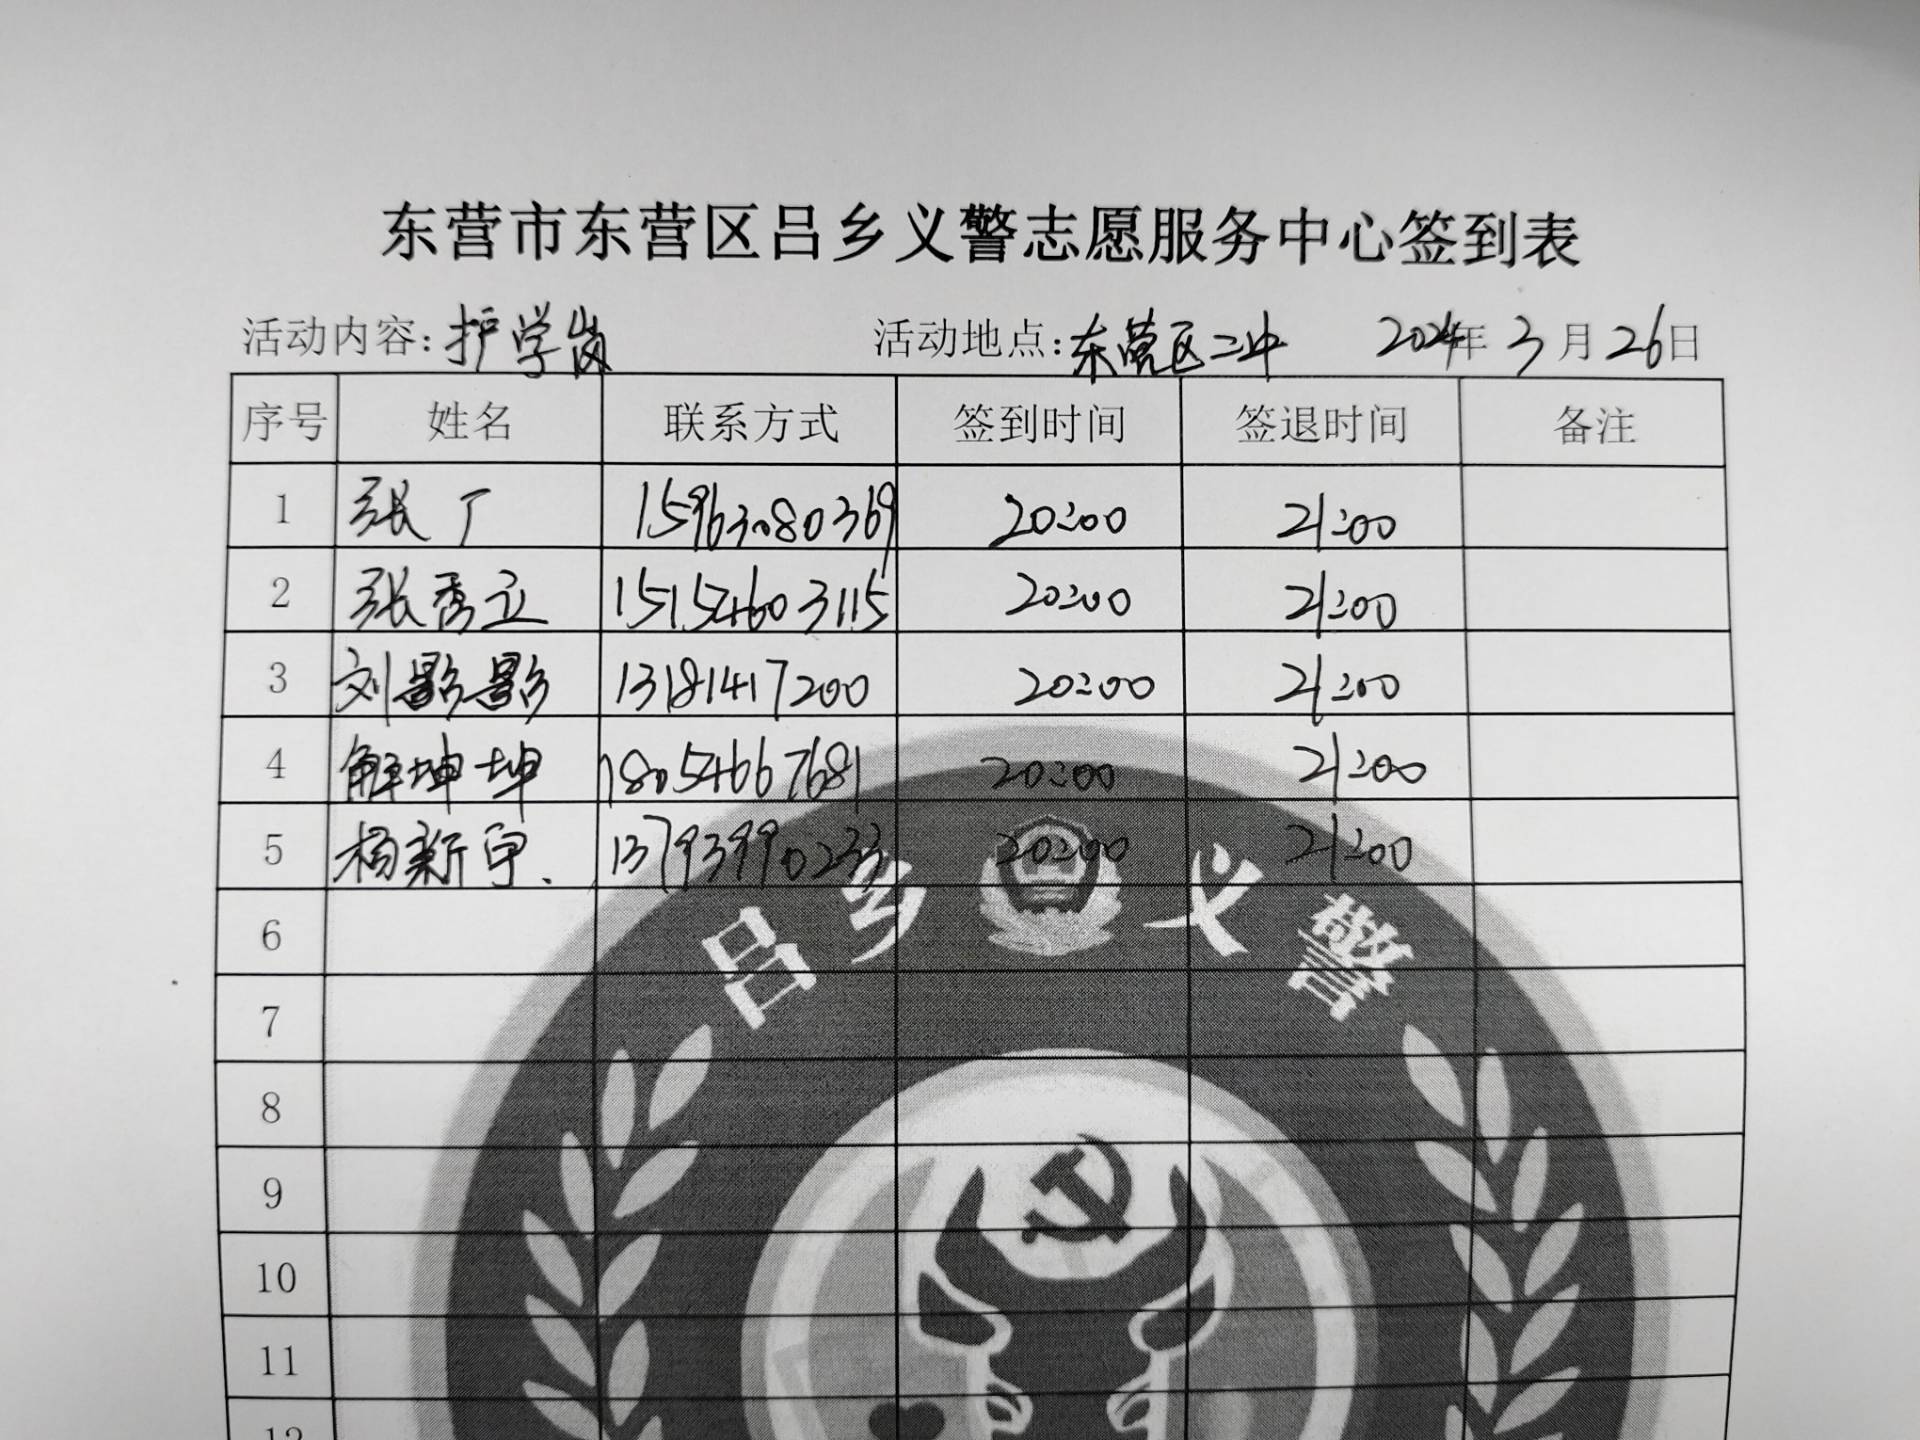 东营市东营区吕乡义警志愿服务中心签到表
活动内容:护学岗 活动地点:东营区二中 2024年3月26日
序号 姓名 联系方式 签到时间 签退时间 备注
1 张丁 15963080369 20:00 21:00
2 张秀立 15154603115 20:00 21:00
3 刘影影 13181417200 20:00 21:00
4 解坤坤 18054667681 20:00 21:00
5 杨新宇. 13793990233 20:00 21:00
吕乡义警
6
7
8
9
10
11
12